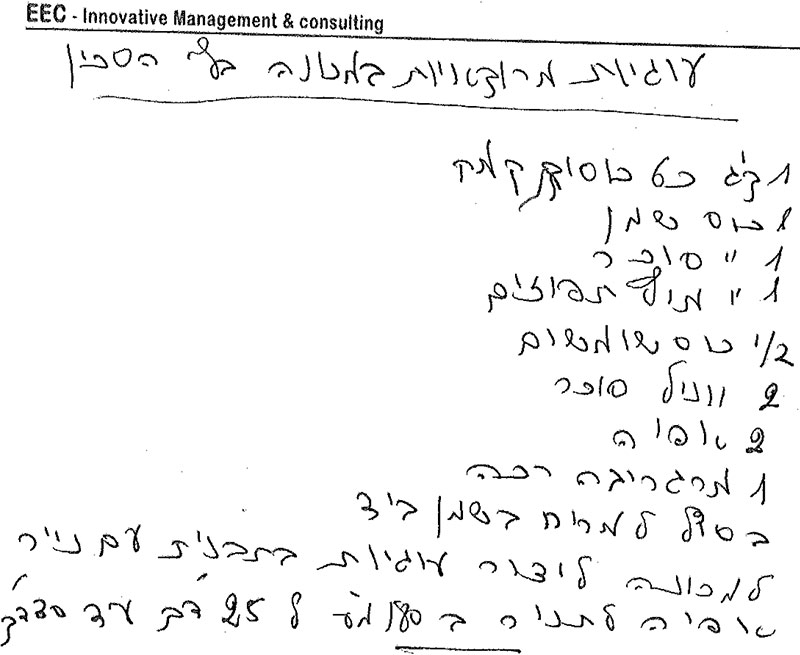 EEC - Innovative Management & consulting
עוגיות מרוקטיות במכונה הסבון
1 ק"ג כ6 כוסות קמח
1 כוס שמן
1 " סוכר
1 " מיץ תפוזים
1/2 כוס שומשום
2 ווניל סוכר
2 אפיה
1 מרגרינה רכה
בסוף למרוח בשמן ביד
למכונה ליצור עוגיות בתבנית עם נייר
אפיה לתנור ב 180 מע' ל 25 דק' עד